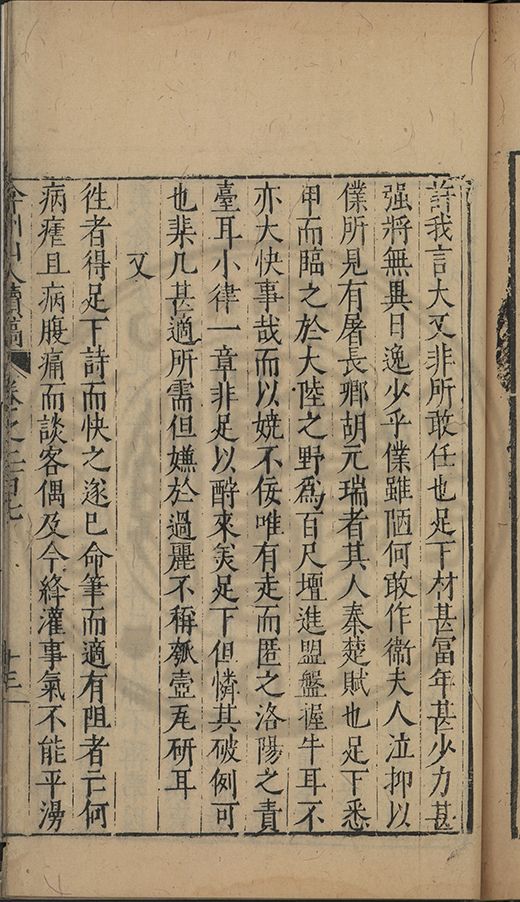 許我言大又非所敢任也足下材甚富年甚少力甚
强將無異日逸少乎僕雖陋何敢作衞夫人泣抑以
僕所見有屠長卿胡元瑞者其人秦楚賦也足下悉
甲而臨之於大陸之野爲百尺壇進盟盤握牛耳不
亦大快事哉而以嬈不佞唯有走而匿之洛陽之責
臺耳小律一章非足以酧來美足下但憐其破例可
也棐几甚適所需但嫌於過麗不稱瓠壺瓦研耳
又
徃者得足下詩而快之遂已命筆而適有阻者亡何
病瘧且病腹痛而談客偶及今絳灌事氣不能平湯
弇州山人續稿 卷之二百七 十三